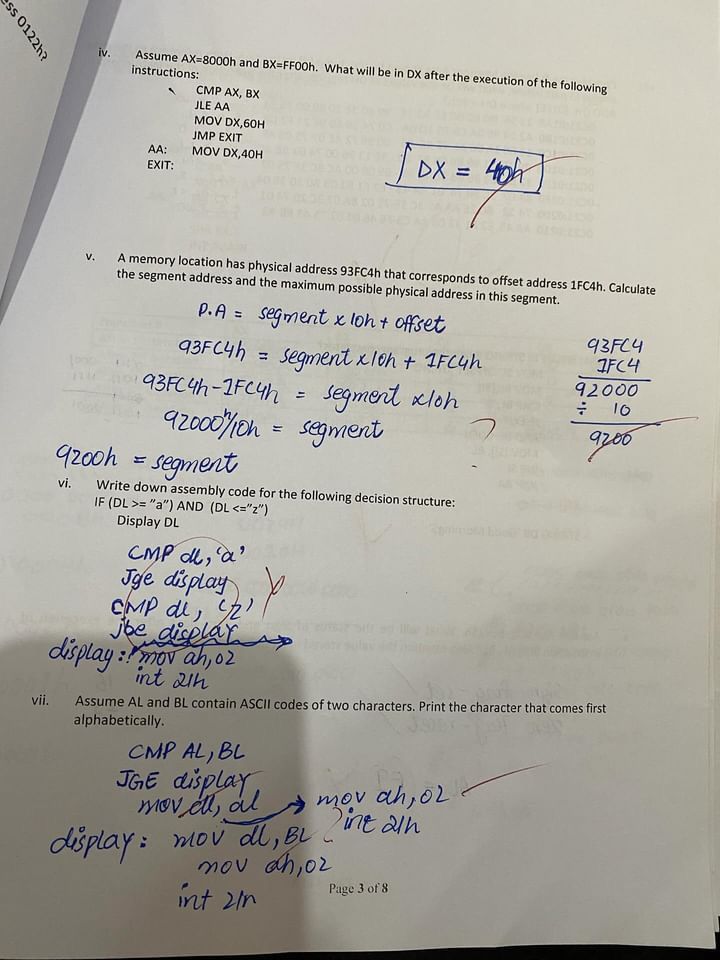 ess 0122h?
iv. Assume AX=8000h and BX=FF00h. What will be in DX after the execution of the following
instructions:
CMP AX, BX
JLE AA
MOV DX,60H
JMP EXIT
AA: MOV DX,40H
EXIT:
DX = 40h
v. A memory location has physical address 93FC4h that corresponds to offset address 1FC4h. Calculate
the segment address and the maximum possible physical address in this segment.
P.A = segment x 10h + offset
93FC4h = segment x 10h + 1FC4h
93FC4h-1FC4h = segment x10h
92000h/10h = segment
9200h = segment
93FC4
1FC4
92000
÷ 10
9200
?
vi. Write down assembly code for the following decision structure:
IF (DL >= "a") AND (DL <="z")
Display DL
CMP dl, 'a'
Jge display
CMP dl, 'z'
jbe display
display: mov ah,02
int 21h
vii. Assume AL and BL contain ASCII codes of two characters. Print the character that comes first
alphabetically.
CMP AL, BL
JGE display
mov dl, al → mov ah,02
int 21h
display: mov dl, BL
mov ah,02
int 21h
Page 3 of 8